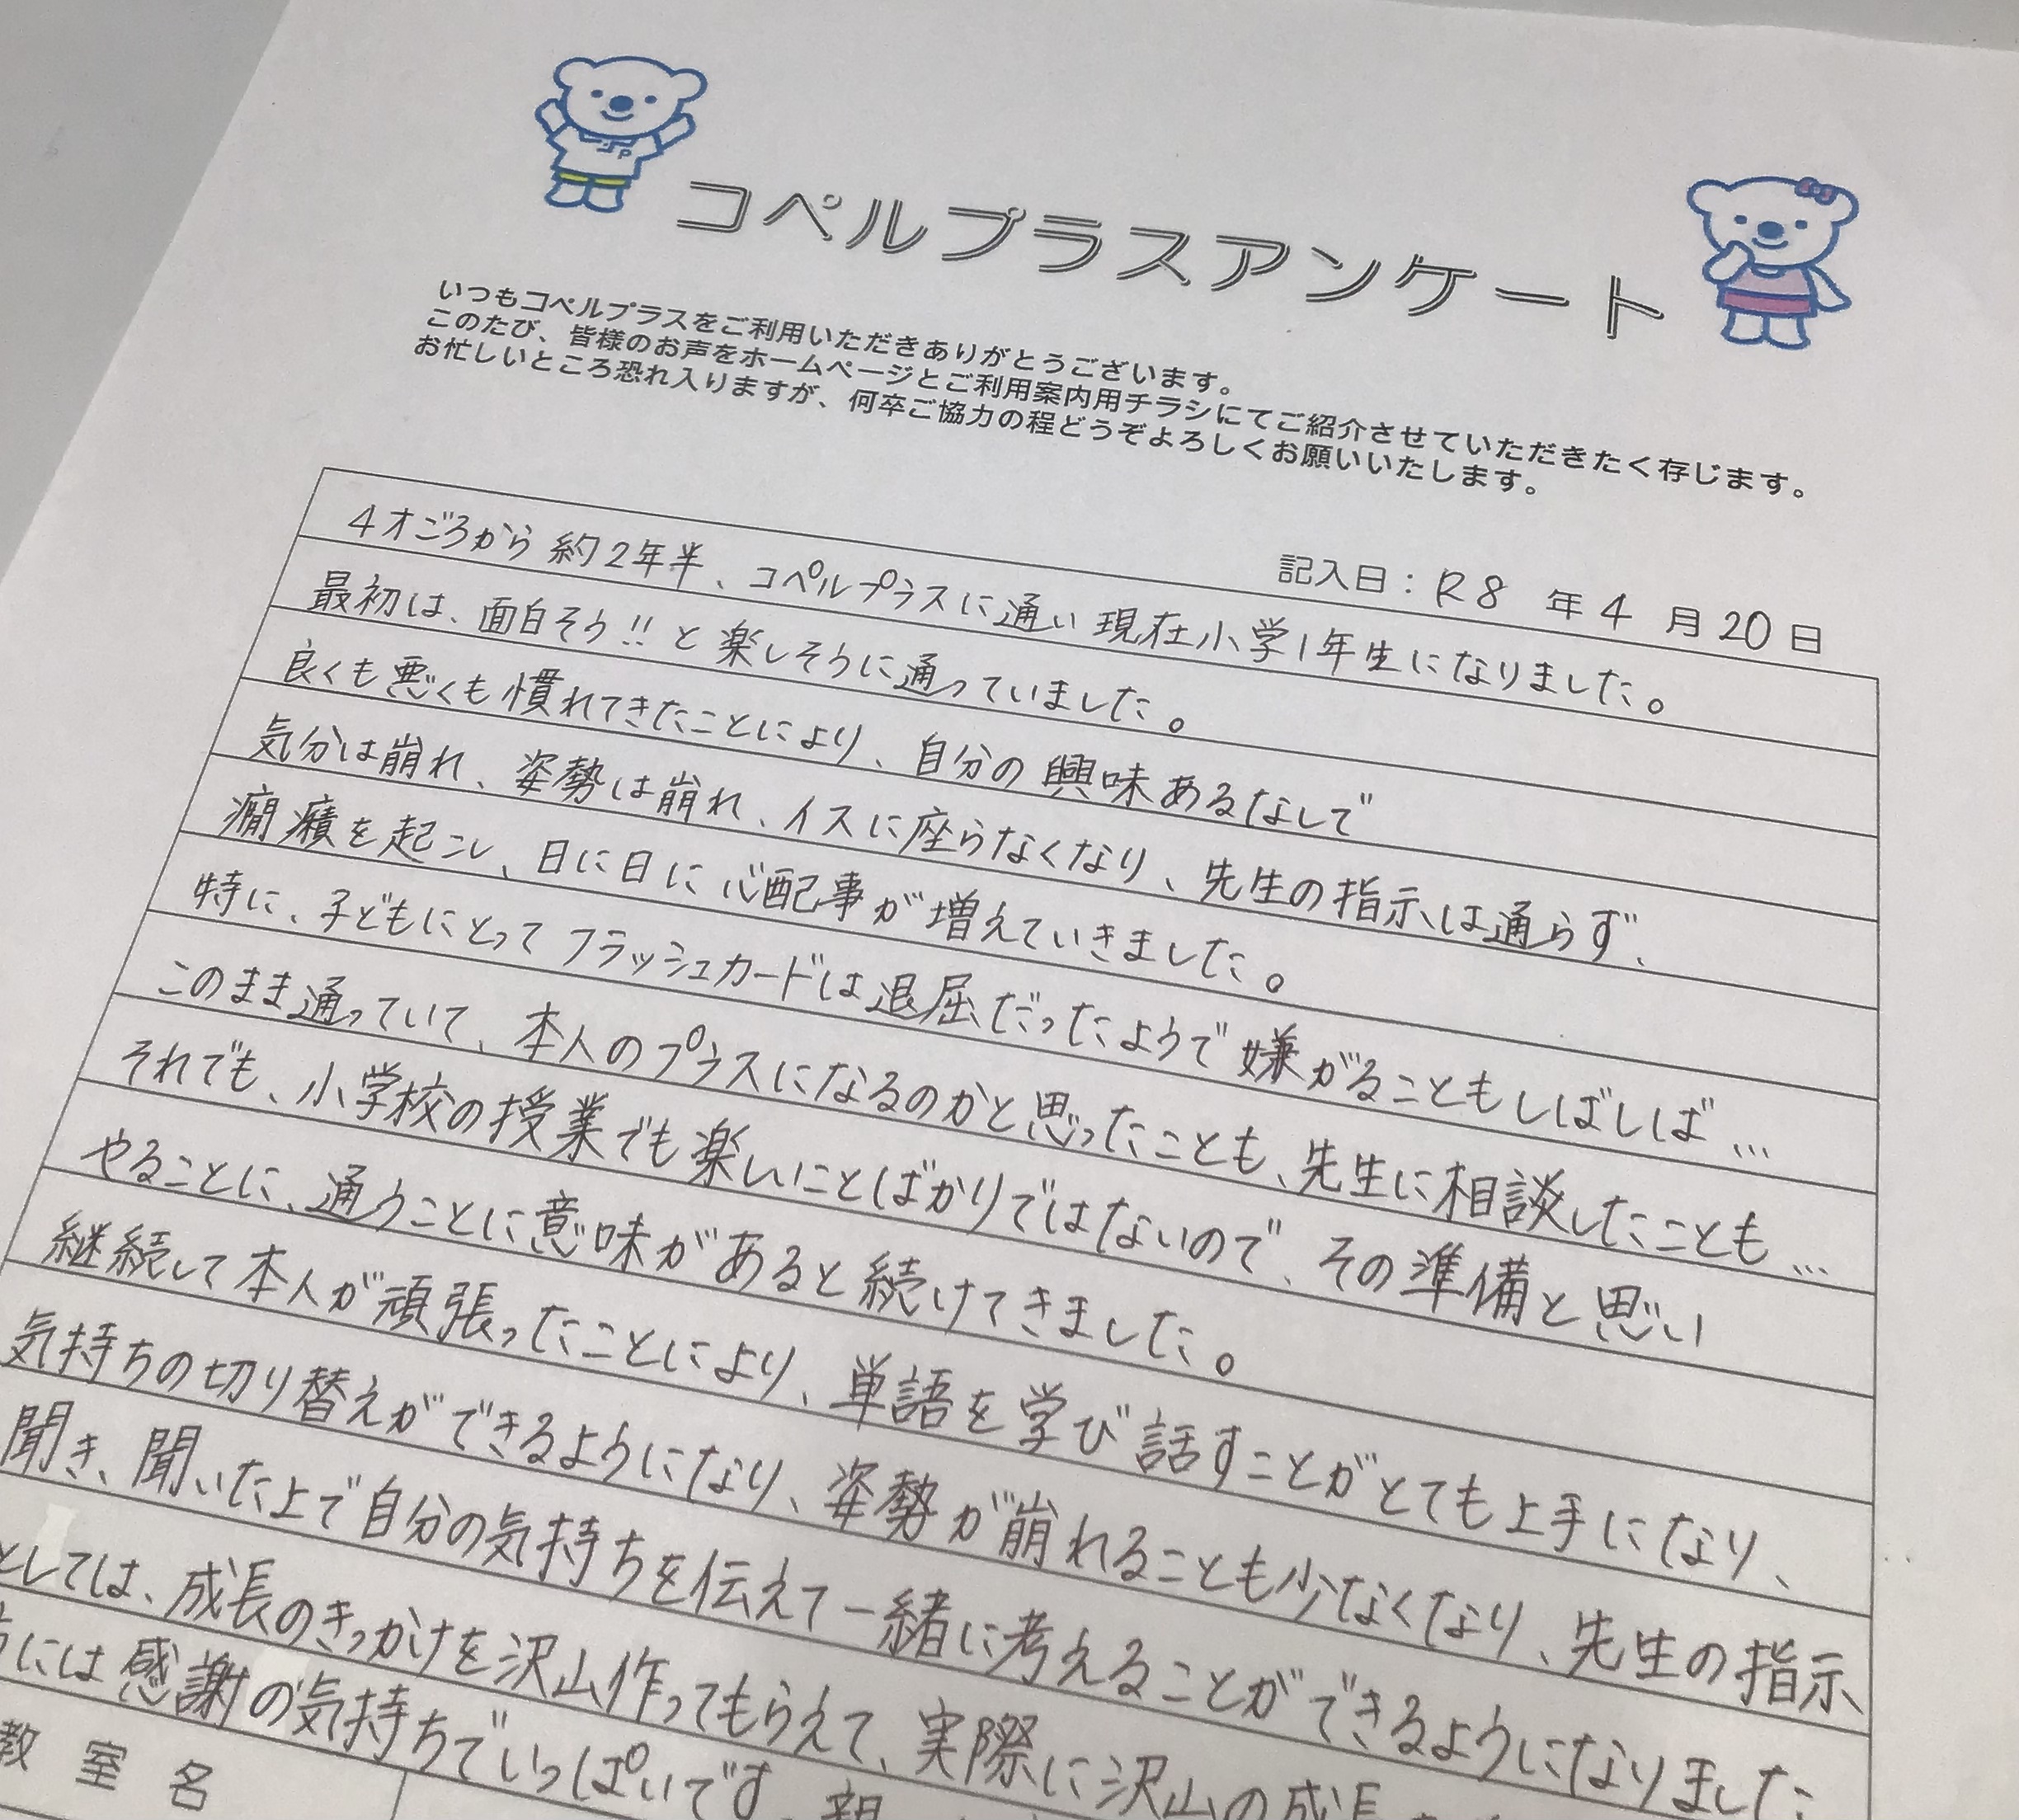 コペルプラスアンケート
いつもコペルプラスをご利用いただきありがとうございます。
このたび、皆様のお声をホームページとご利用案内用チラシにてご紹介させていただきたく存じます。
お忙しいところ恐れ入りますが、何卒ご協力の程どうぞよろしくお願いいたします。
記入日：R8 年 4 月 20 日
4才ごろから約2年半、コペルプラスに通い現在小学1年生になりました。
最初は、面白そう!!と楽しそうに通っていました。
良くも悪くも慣れてきたことにより、自分の興味あるなしで
気分は崩れ、姿勢は崩れ、イスに座らなくなり、先生の指示は通らず、
癇癪を起こし、日に日に心配事が増えていきました。
特に、子どもにとってフラッシュカードは退屈だったようで嫌がることもしばしば…
このまま通っていて、本人のプラスになるのかと思ったことも、先生に相談したことも…
それでも、小学校の授業でも楽しいことばかりではないので、その準備と思い
やることに、通うことに意味があると続けてきました。
継続して本人が頑張ったことにより、単語を学び話すことがとても上手になり、
気持ちの切り替えができるようになり、姿勢が崩れることも少なくなり、先生の指示
聞き、聞いた上で自分の気持ちを伝えて一緒に考えることができるようになりました
としては、成長のきっかけを沢山作ってもらえて、実際に沢山の成長
には感謝の気持ちでいっぱいです
教室名